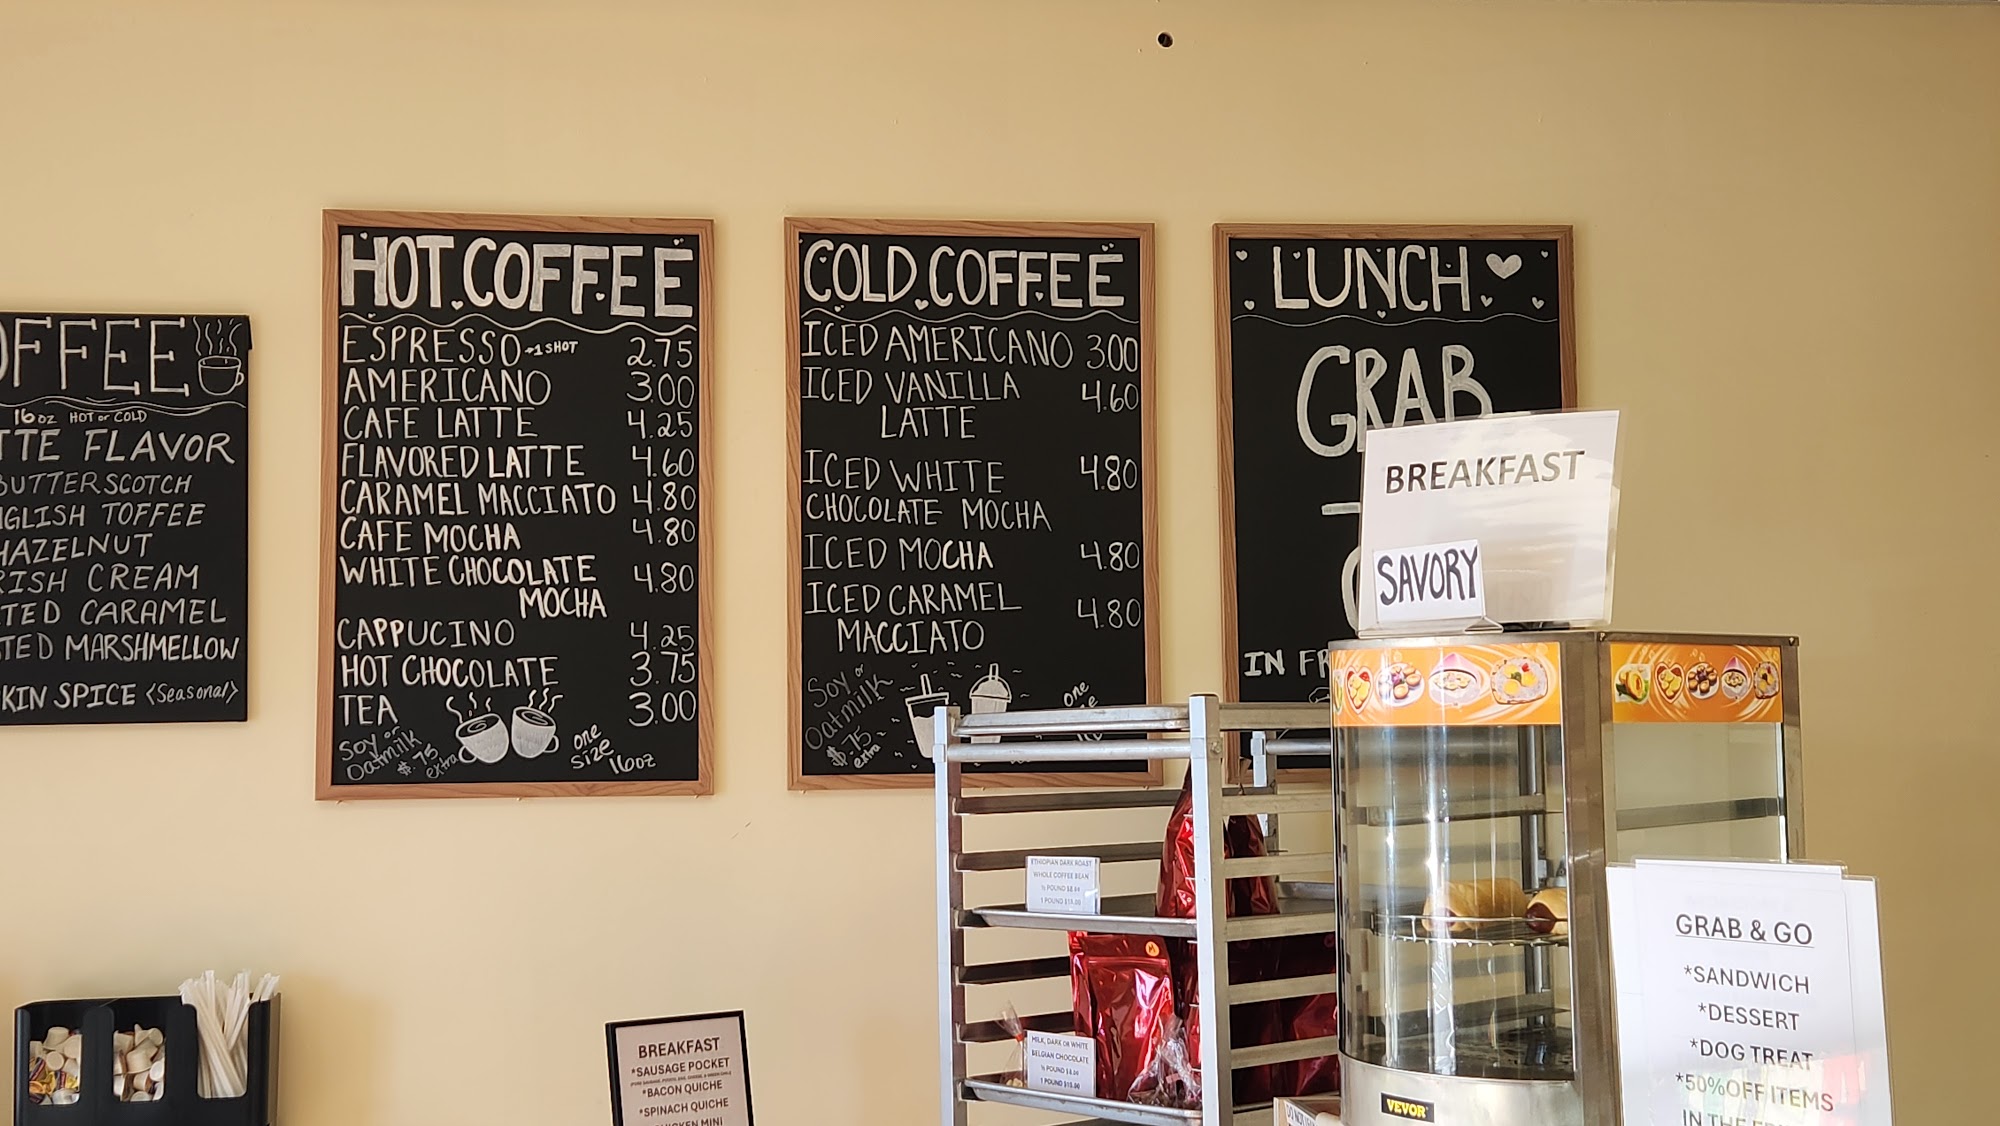 OFFEE
16oz HOT or COLD
TTE FLAVOR
BUTTERSCOTCH
GLISH TOFFEE
HAZELNUT
RISH CREAM
TED CARAMEL
TED MARSHMELLOW
KIN SPICE <Seasonal>
HOT COFFEE
ESPRESSO →1 SHOT 2.75
AMERICANO 3.00
CAFE LATTE 4.25
FLAVORED LATTE 4.60
CARAMEL MACCIATO 4.80
CAFE MOCHA 4.80
WHITE CHOCOLATE 4.80
MOCHA
CAPPUCINO 4.25
HOT CHOCOLATE 3.75
TEA 3.00
Soy or
Oatmilk
$.75
extra
one
size
16oz
COLD COFFEE
ICED AMERICANO 3.00
ICED VANILLA 4.60
LATTE
ICED WHITE 4.80
CHOCOLATE MOCHA
ICED MOCHA 4.80
ICED CARAMEL 4.80
MACCIATO
Soy or
Oatmilk
$.75
extra
one
LUNCH
GRAB
IN FR
BREAKFAST
SAVORY
ETHIOPIAN DARK ROAST
WHOLE COFFEE BEAN
½ POUND $8.00
1 POUND $15.00
MILK, DARK OR WHITE
BELGIAN CHOCOLATE
½ POUND $8.00
1 POUND $15.00
VEVOR
GRAB & GO
*SANDWICH
*DESSERT
*DOG TREAT
*50%OFF ITEMS
IN THE
BREAKFAST
*SAUSAGE POCKET
*BACON QUICHE
*SPINACH QUICHE
CHICKEN MINI